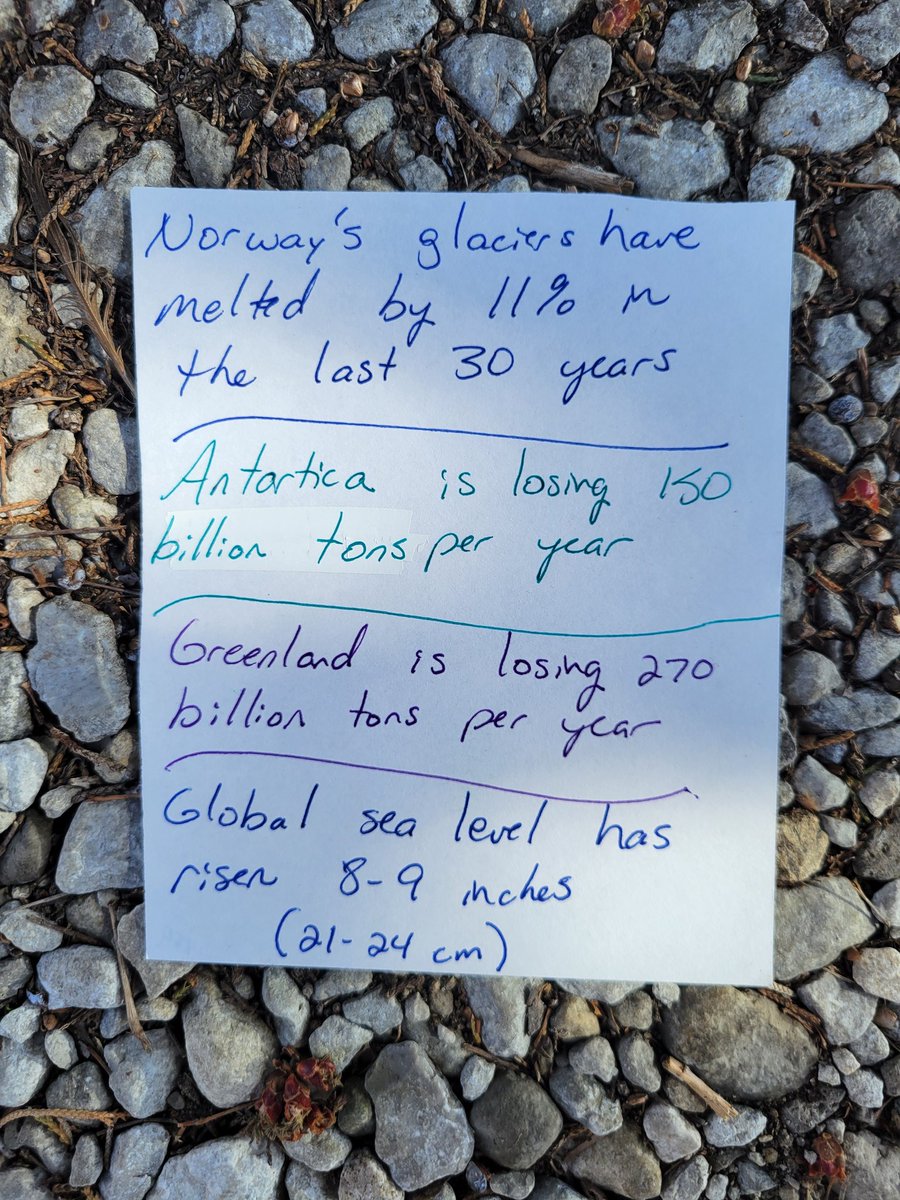 Norway's glaciers have
melted by 11% in
the last 30 years
Antartica is losing 150
billion tons per year
Greenland is losing 270
billion tons per year
Global sea level has
risen 8-9 inches
(21-24 cm)